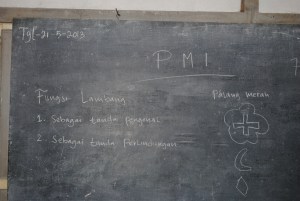 Tgl - 21 - 5 - 2013
P M I
Fungsi Lambang
Palang merah
1. Sebagai tanda pengenal
2. Sebagai tanda Perlindungan